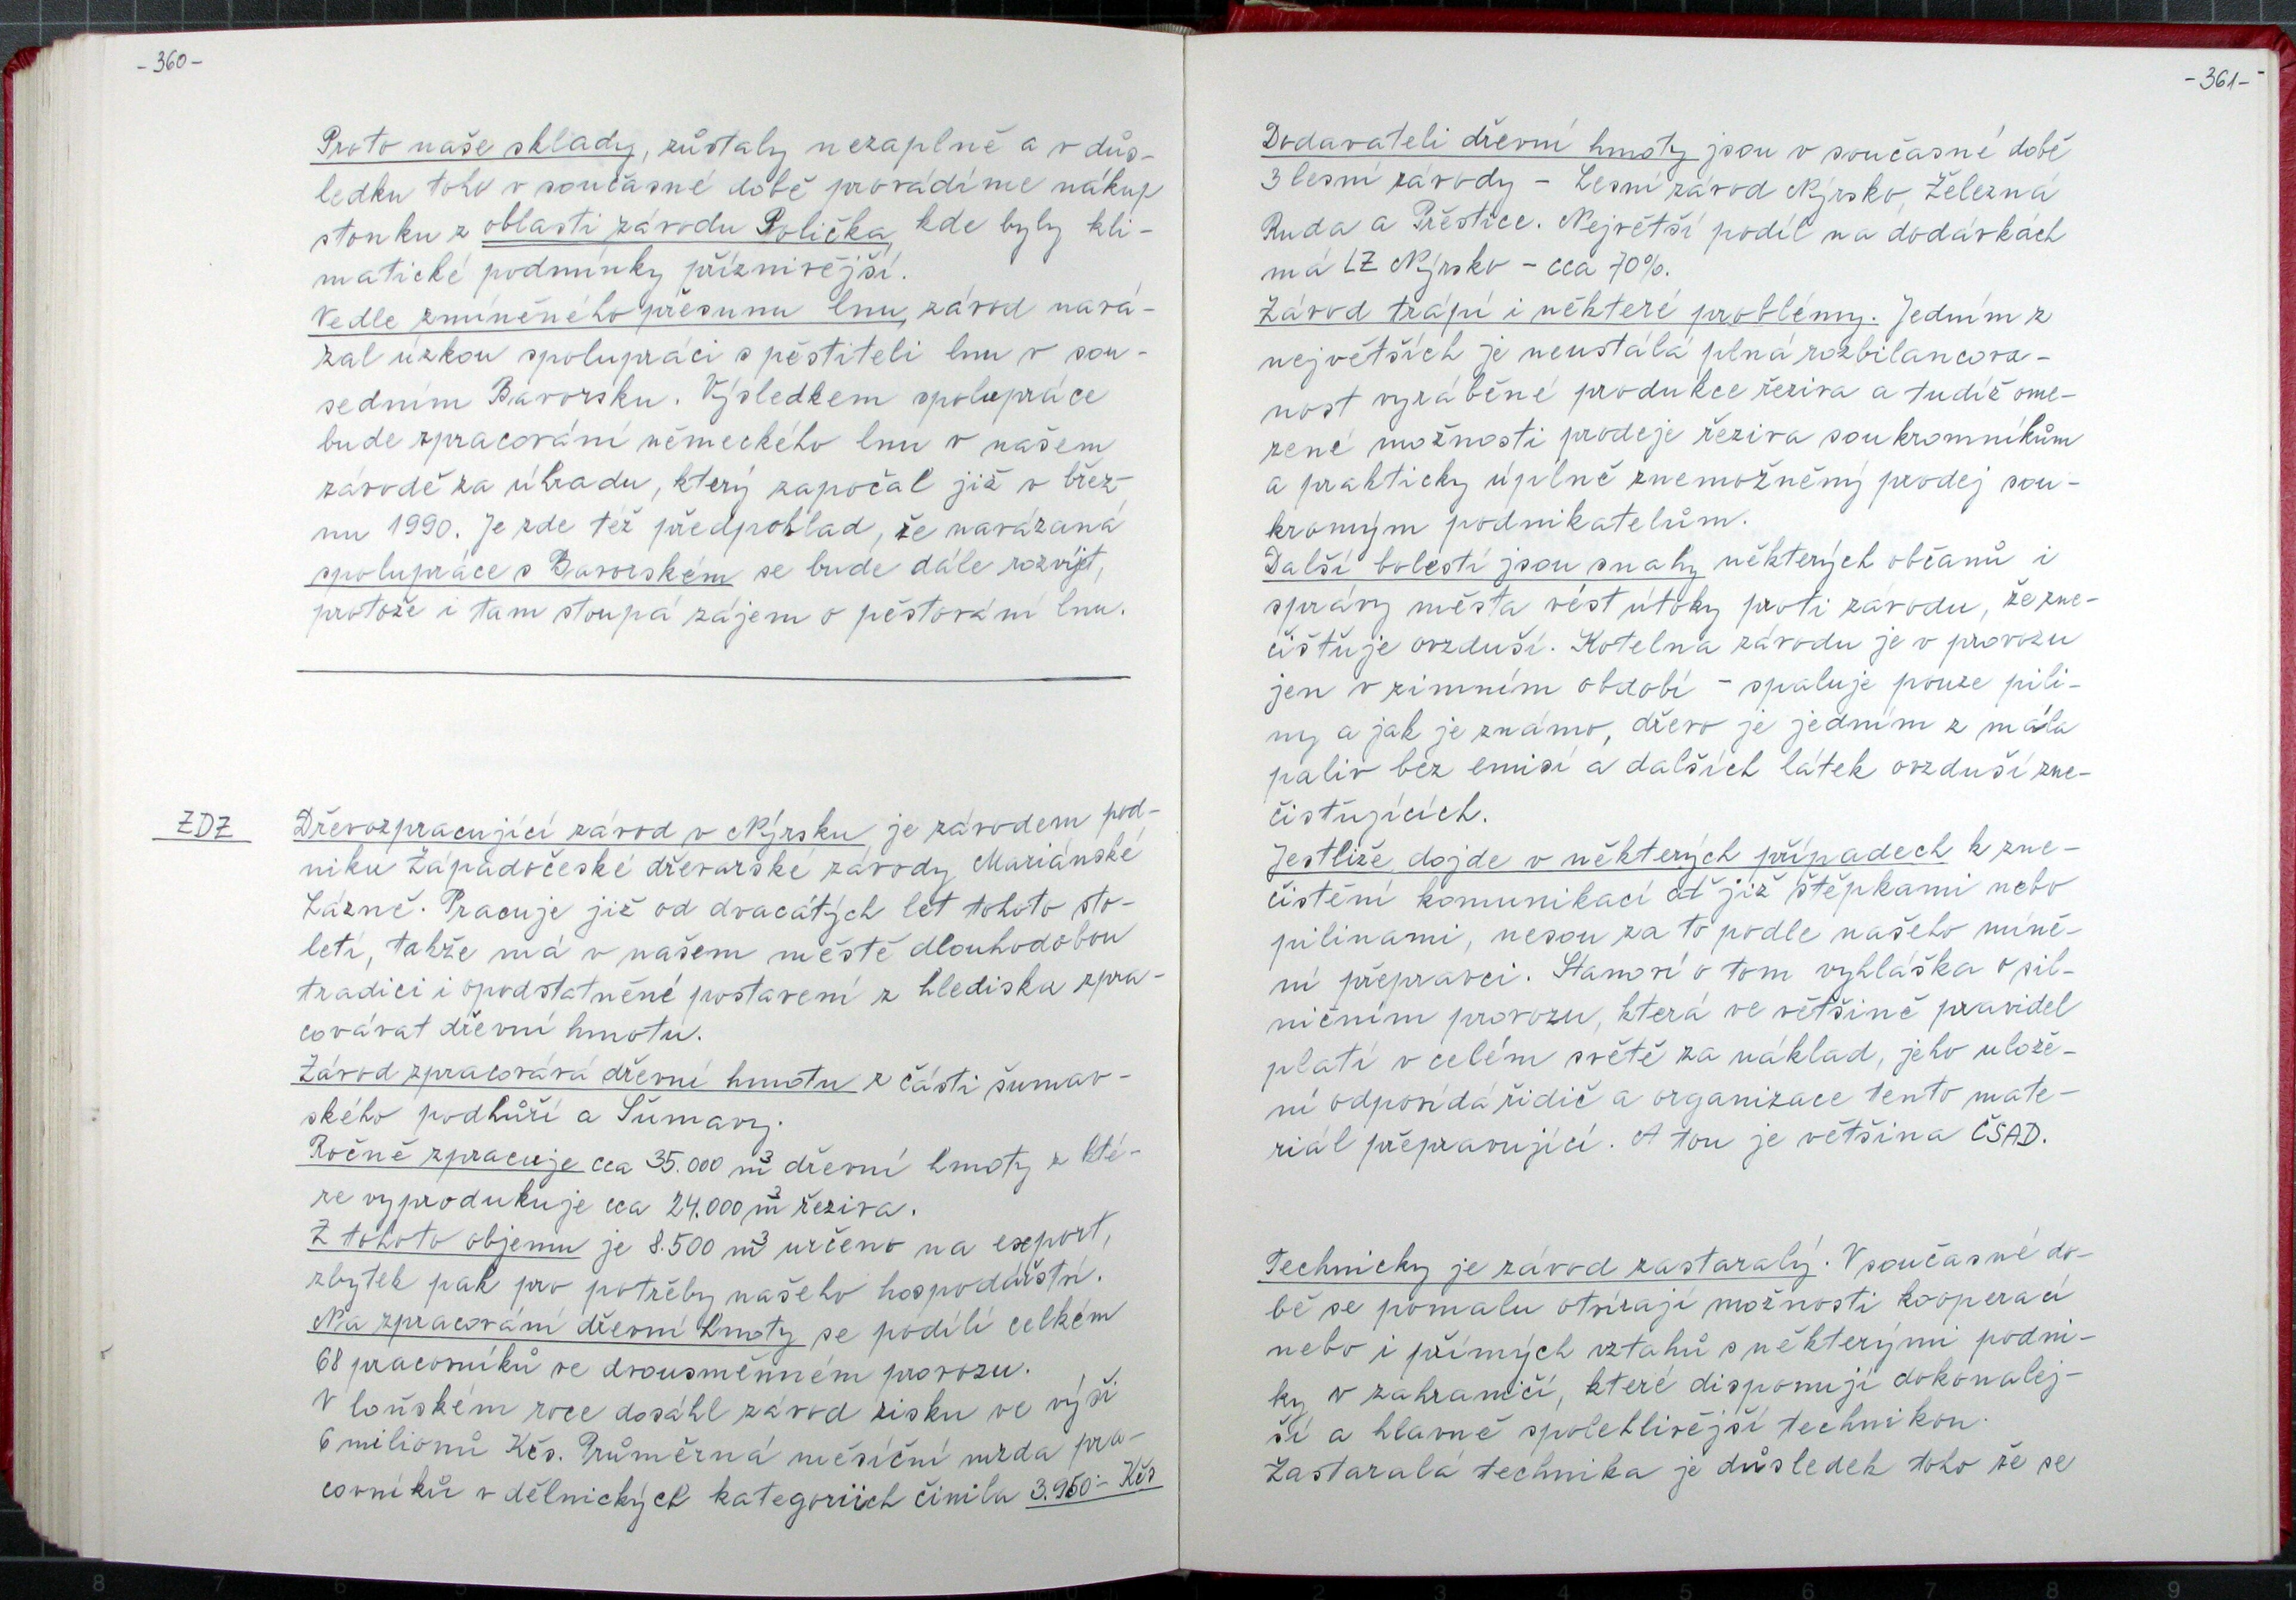 -360-
Proto naše sklady, zůstaly nezaplně a v důs-
ledku toho v současné době provádíme nákup
stonku z oblasti závodu Polička, kde byly kli-
matické podmínky příznivější.
Vedle zmíněného přesunu lnu, závod navá-
zal úzkou spolupráci s pěstiteli lnu v sou-
sedním Bavorsku. Výsledkem spolupráce
bude zpracování německého lnu v našem
závodě za úhradu, který započal již v břez-
nu 1990. Je zde též předpoklad, že navázaná
spolupráce s Bavorském se bude dále rozvíjt,
protože i tam stoupá zájem o pěstování lnu.
ZDZ
Dřevozpracující závod v Nýrsku, je závodem pod-
niku Západočeské dřevařské závody Mariánské
Lázně. Pracuje již od dvacátých let tohoto sto-
letí, takže má v našem městě dlouhodobou
tradici i opodstatněné postavení z hlediska zpra-
covávat dřevní hmotu.
Závod zpracovává dřevní hmotu z části šumav-
ského podhůří a Šumavy.
Ročně zpracuje cca 35.000 m³ dřevní hmoty z kté-
re vyprodukuje cca 24.000 m³ řeziva.
Z tohoto objemu je 8.500 m³ určeno na export,
zbytek pak pro potřeby našeho hospodářství.
Na zpracování dřevní hmoty se podílí celkém
68 pracovníků ve dvousměnném provozu.
V loňském roce dosáhl závod zisku ve výši
6 milionů Kčs. Průměrná měsíční mzda pra-
covníků v dělnických kategoriích činila 3.950.- Kčs
-361-
Dodavateli dřevní hmoty jsou v současné době
3 lesní závody - Lesní závod Nýrsko, Železná
Ruda a Přeštice. Největší podíl na dodávkách
má LZ Nýrsko - cca 70%.
Závod trápí i některé problémy. Jedním z
největších je neustálá plná rozbilancova-
nost vyráběné produkce řeziva a tudíž ome-
zené možnosti prodeje řeziva soukromníkům
a prakticky úplně znemožněný prodej sou-
kromým podnikatelům.
Další bolestí jsou snahy některých občanů i
správy města vést útoky proti závodu, že zne-
čišťuje ovzduší. Kotelna závodu je v provozu
jen v zimním období - spaluje pouze pili-
ny a jak je známo, dřevo je jedním z mála
paliv bez emisí a dalších látek ovzduší zne-
čisťujících.
Jestliže dojde v některých případech k zne-
čistění komunikací ať již štěpkami nebo
pilinami, nesou za to podle našeho míně-
ní přepravci. Stanoví o tom vyhláška o sil-
ničním provozu, která ve většině pravidel
platí v celém světě za náklad, jeho ulože-
ní odpovídá řidič a organizace tento mate-
riál přepravující. A tou je většina ČSAD.
Technicky je závod zastaralý. V současné do-
bě se pomalu otvírají možnosti kooperací
nebo i přímých vztahů s některými podni-
ky v zahraničí, které disponují dokonalej-
ší a hlavně spolehlivější technikou.
Zastaralá technika je důsledek toho že se